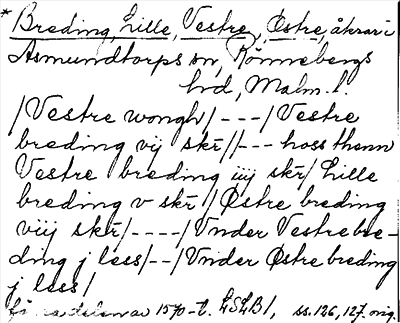 * Breding, Lille, Vestre, Østre, åkrar i
Asmundtorps sn, Rönnebergs
hd, Malm. l.
/Vestre wongh/---/Vestre
breding vij skr̄//--- hoss thenn
Vestre breding iiij skr̄/ Lille
breding v skr̄ / Østre breding
viij skr̄/----/Vnder Vestre bre-
ding j less/--/Vnder Østre breding
j less/
1570-t. LSLB/, ss. 126, 127, orig.